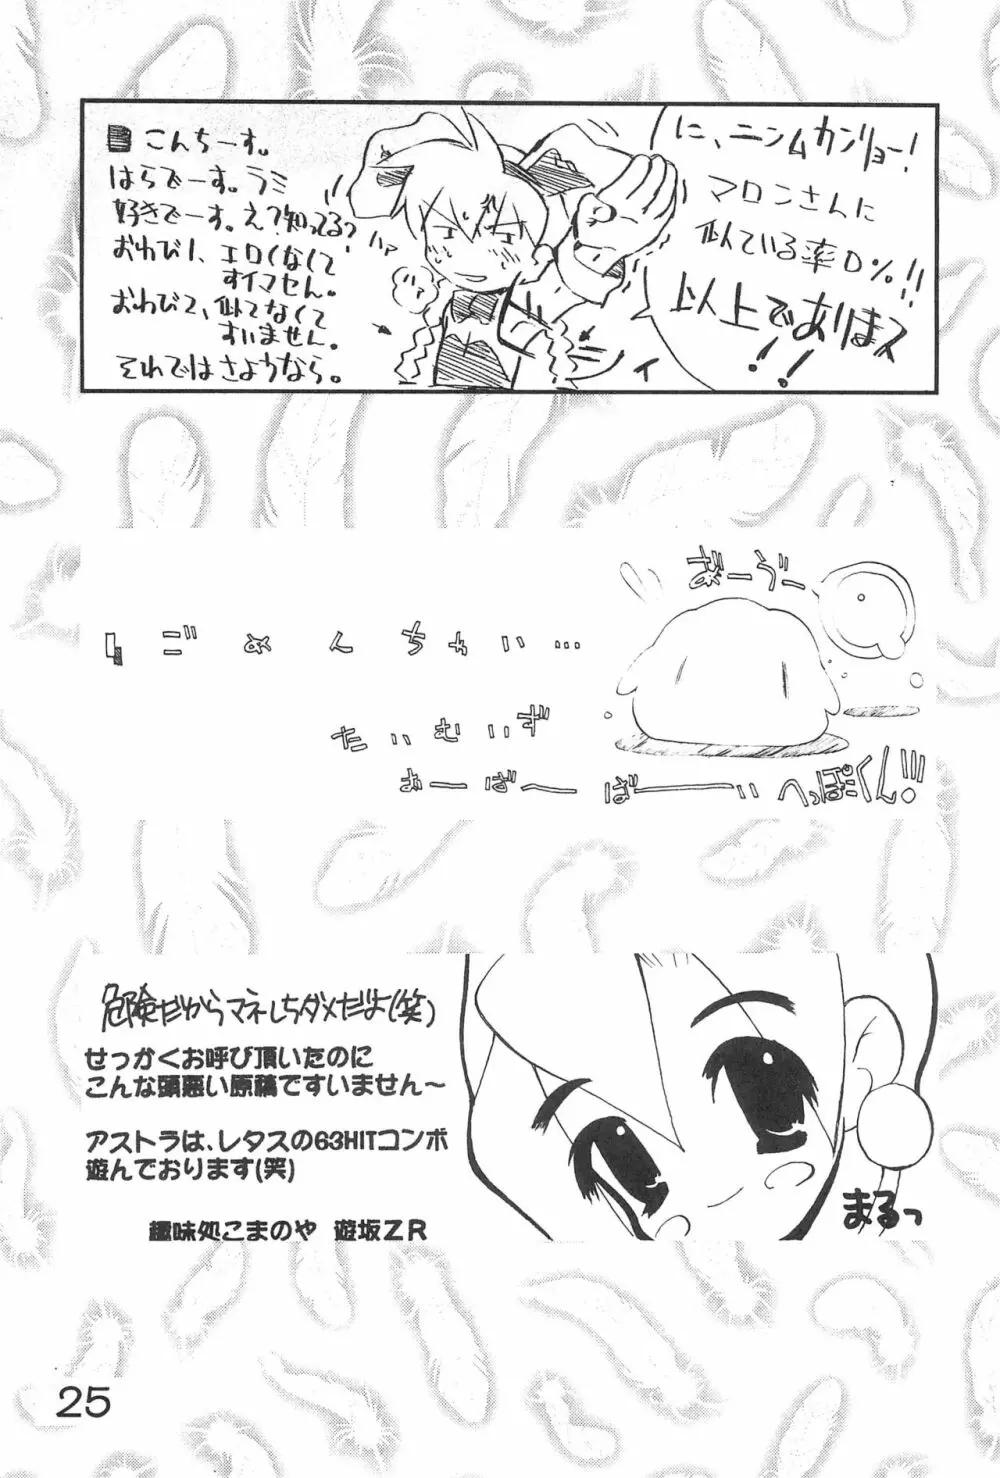 こんちーす。
はらでーす。ラミ
好きでーす。え?知ってる?
おわび1、エロくなくて
すイマセん。
おわび2、似てなくて
すいません。
それではさようなら。
に、ニンムカンリョー!
マロンさんに
似ている率0%!!
以上でありまス
!!
ごめんちゃい…
たいむいず
おーばーばーい
へっぽくん!!!
危険だからマネしちゃダメだよ(笑)
せっかくお呼び頂いたのに
こんな頭悪い原稿ですいません~
アストラは、レタスの63HITコンボ
遊んでおります(笑)
趣味処こまのや 遊坂ZR
まるっ
25